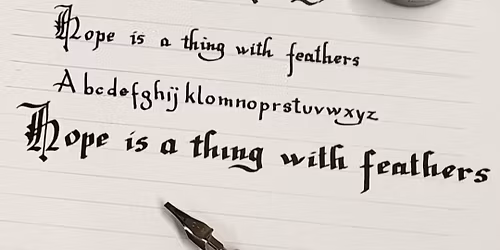 Hope is a thing with feathers
A bcdefghij klomnoprstuvwxyz
Hope is a thing with feathers